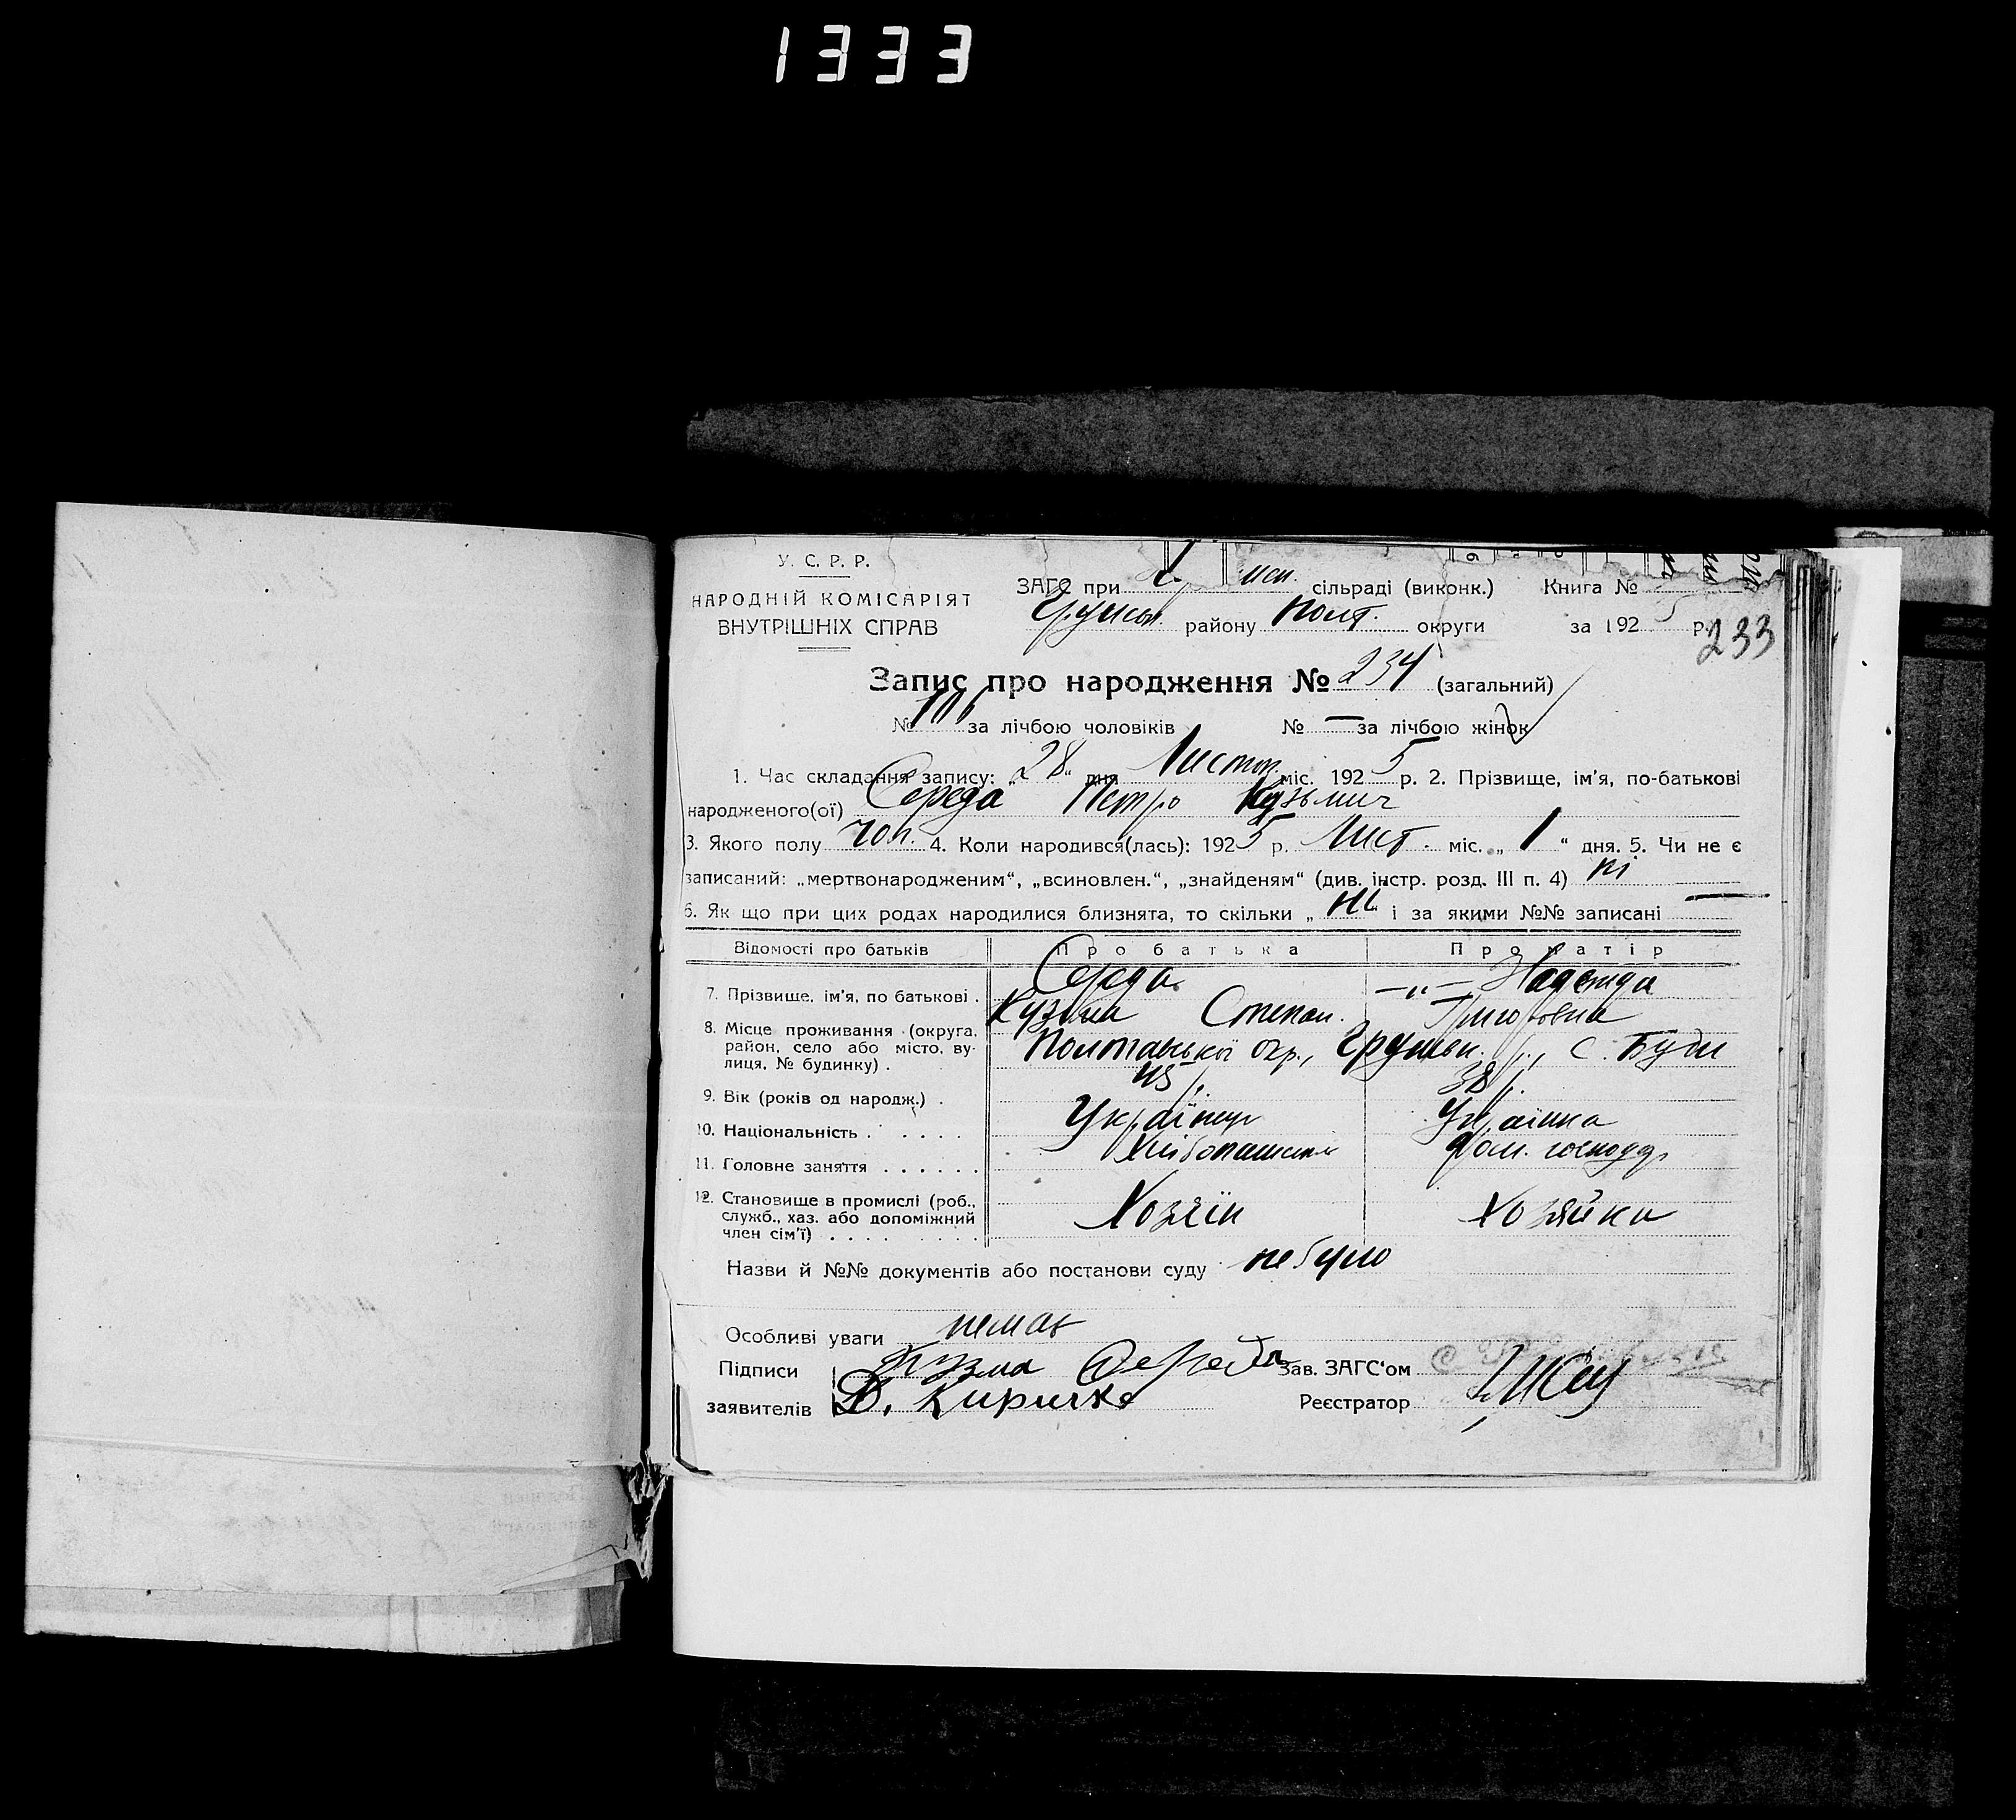 1333
У. С. Р. Р.
НАРОДНІЙ КОМІСАРІЯТ
ВНУТРІШНІХ СПРАВ
ЗАГС при сільраді (виконк.) Книга №
району Полт. округи за 1925 р.
233
Запис про народження № 234 (загальний)
№ 106 за лічбою чоловіків № — за лічбою жінок
1. Час складання запису: „28“ дня Листоп. міс. 1925 р. 2. Прізвище, ім'я, по-батькові
народженого(ої) Середа Петро Кузьмич
3. Якого полу чол. 4. Коли народився(лась): 1925 р. Лист. міс. „1“ дня. 5. Чи не є
записаний: „мертвонародженим“, „всиновлен.“, „знайденям“ (див. інстр. розд. III п. 4) ні
6. Як що при цих родах народилися близнята, то скільки „ні“ і за якими №№ записані —
Відомості про батьків Про батька Про матір
7. Прізвище, ім'я, по батькові . Середа Кузьма Степан. —„— Надежда Григоровна
8. Місце проживання (округа, район, село або місто, вулиця, № будинку) . Полтавської окр., с. Буди
9. Вік (років од народж.) . 43 р. 38 р.
10. Національність . . . . . Українець Українка
11. Головне заняття . . . . . . Дом. господар
12. Становище в промислі (роб., служб., хаз. або допоміжний член сім'ї) . . . . Хозяїн Хозяйка
Назви й №№ документів або постанови суду небуло
Особливі уваги немає
Підписи Кузма Середа Зав. ЗАГС'ом
заявителів Реєстратор